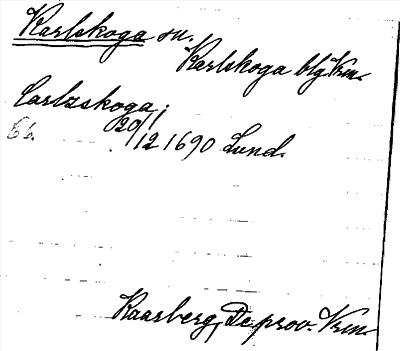 Karlskoga sn.
Karlskoga blg Vrm.
Carlzskoga;
66. 20/12 1690 Lund.
Kaarberg, De prov. Vrm.